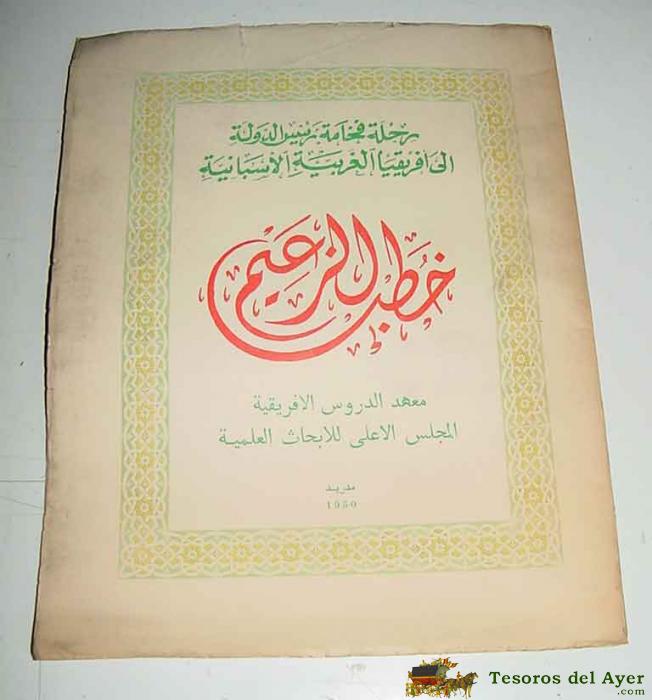 رحلة فخامة رئيس الدولة
الى افريقيا الغربية الأسبانية
خُطب الزعيم
معهد الدروس الافريقية
المجلس الاعلى للابحاث العلمية
مدريد
1950
Tesoros del Ayer
.com